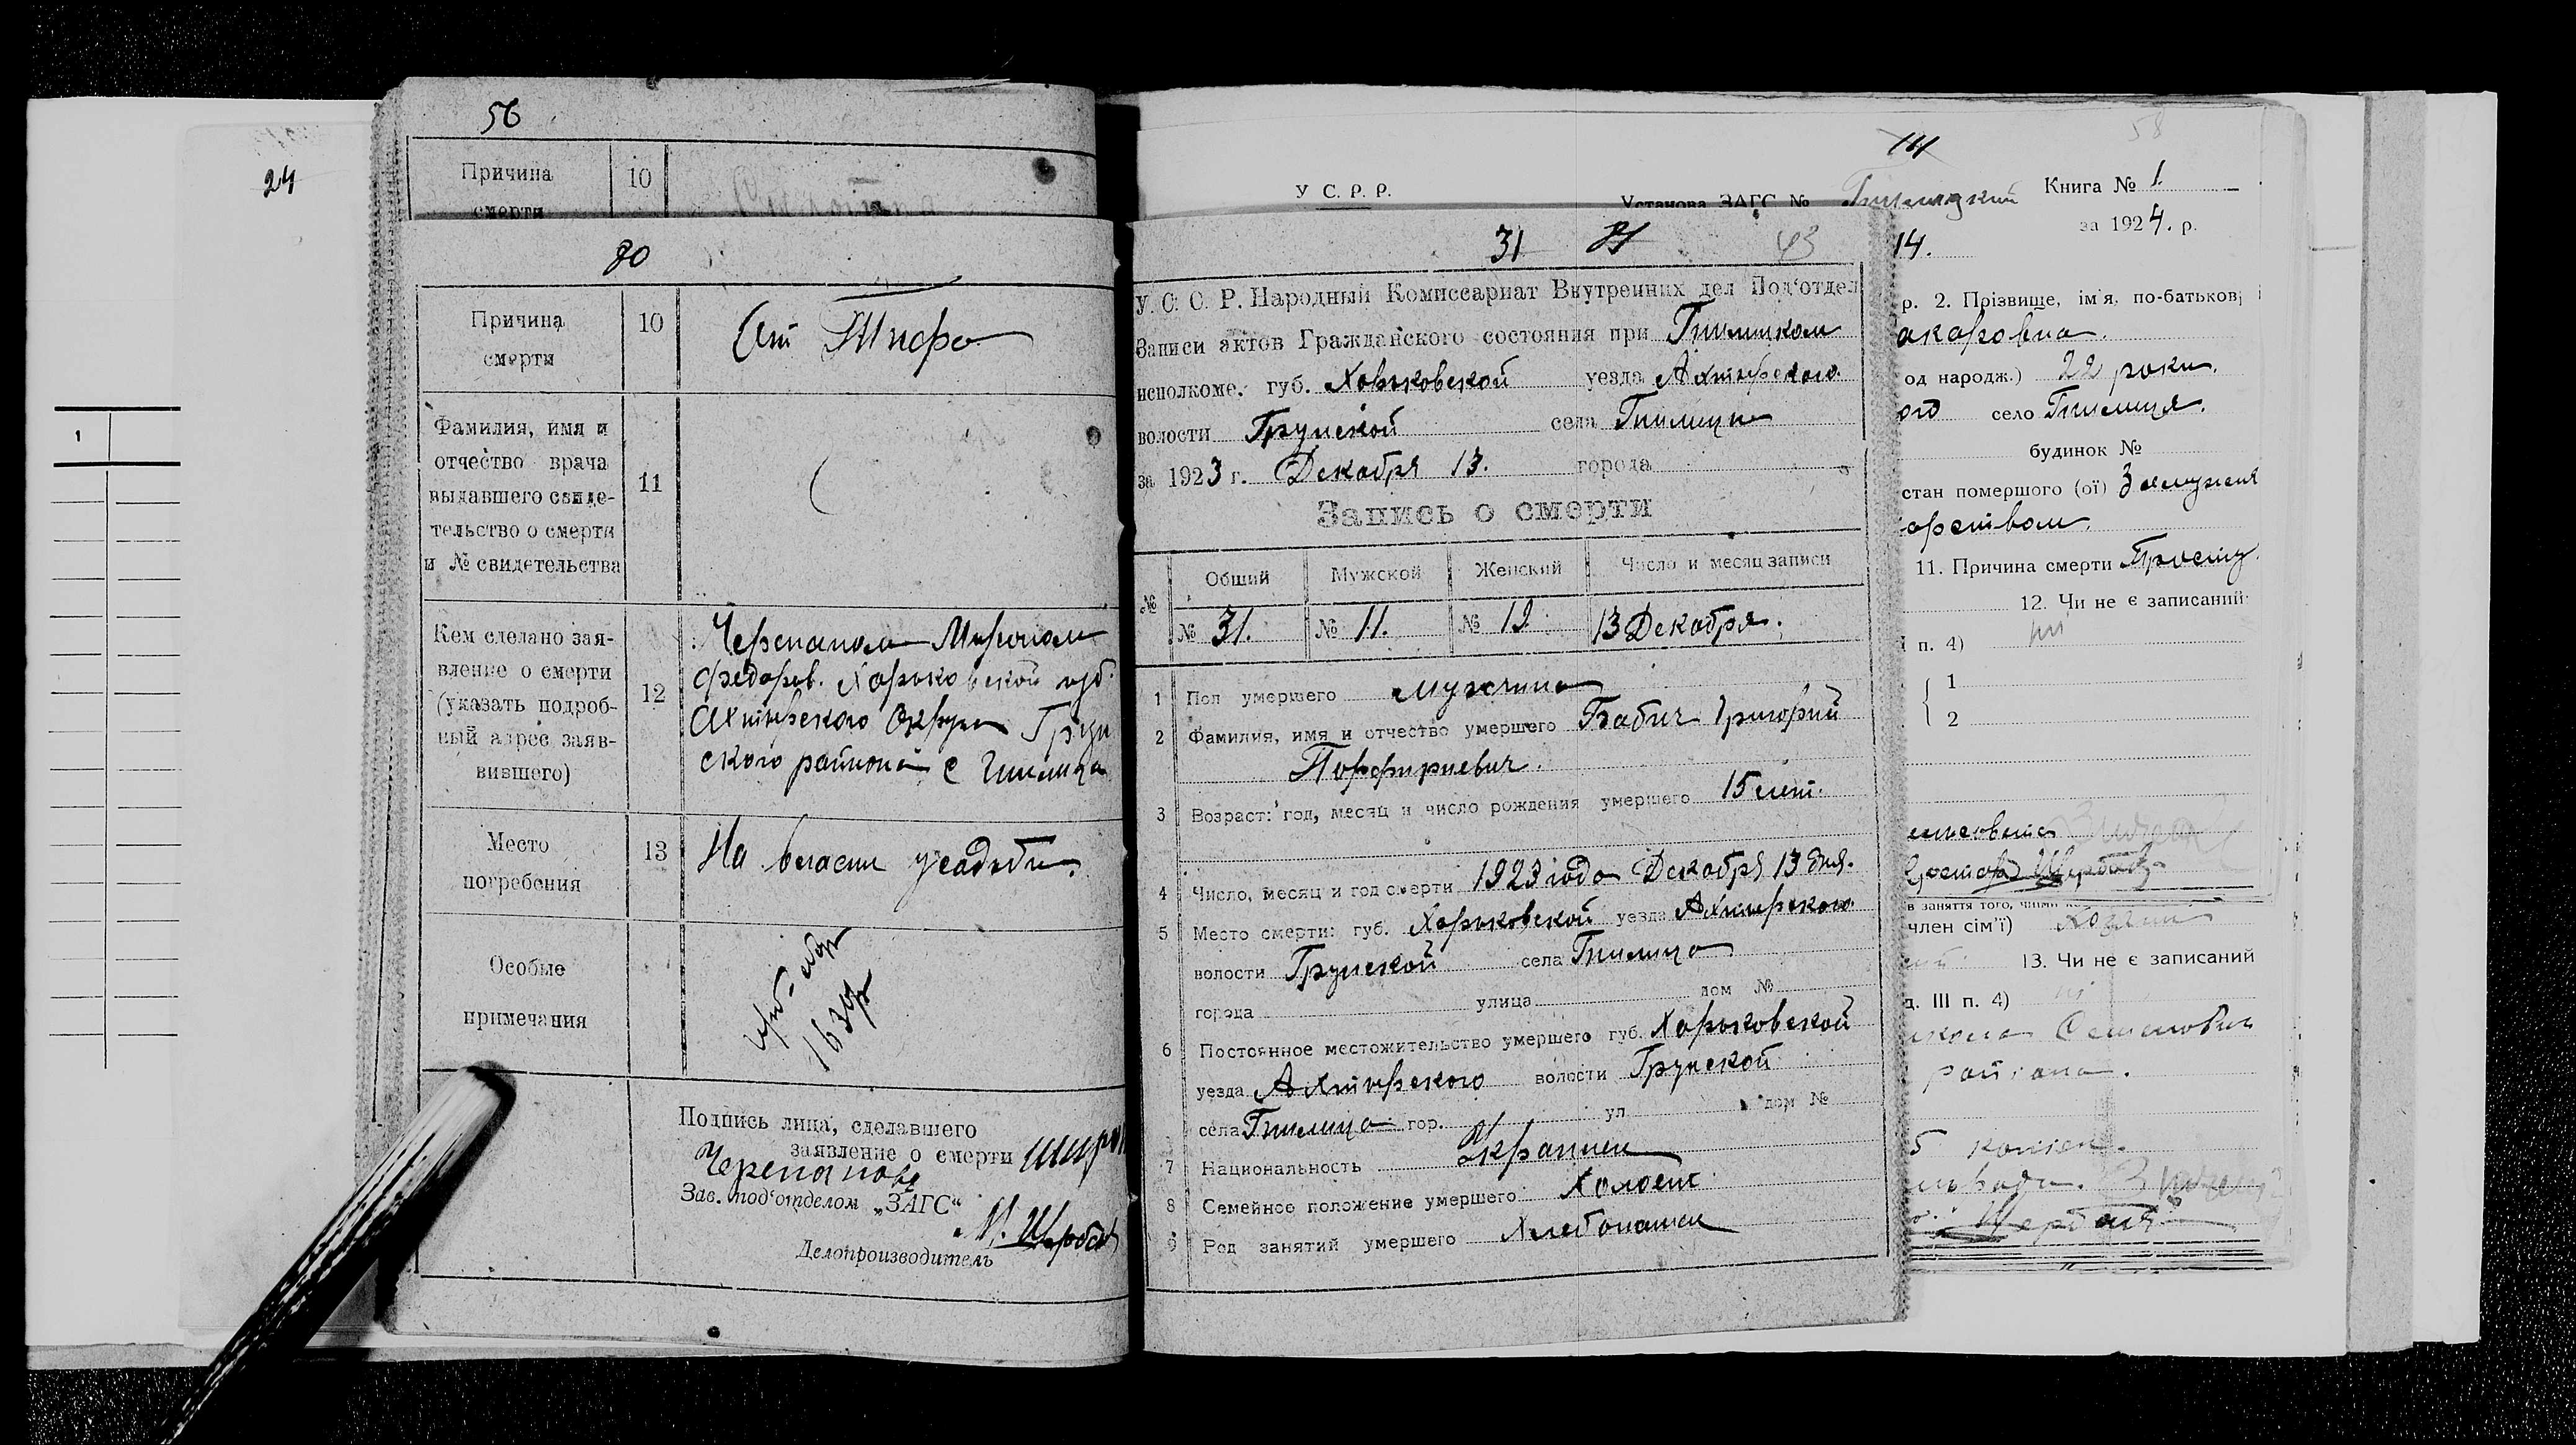 24
1
56
Причина
смерти
10
80
Причина
смерти
10
От Тифа
Фамилия, имя и
отчество врача
выдавшего свиде-
тельство о смерти
и № свидетельства
11
Кем сделано зая-
вление о смерти
(указать подроб-
ный адрес заяв-
вившего)
12
Черепаном Мироном
Федоров. Харьковской губ.
Ахтырского Округа Грун
ского района с Гнилица
Место
погребения
13
На власти усадьби.
Особые
примечания
Подпись лица, сделавшего
заявление о смерти
Черепа
Зав. под‘отделом „ЗАГС“
М. Щерба
Делопроизводитель
У С. Р. Р.
Установа ЗАГС №
Книга № 1.
за 1924. р.
14.
31
43
У. С. С. Р. Народный Комиссариат Внутренних дел Под‘отдел
Записи актов Гражданского состояния при Гнилицком
исполкоме. губ. Харьковской уезда Ахтырского
волости Грунской села Гнилици
за 1923 г. Декабря 13. города
Запись о смерти
№ Общий Мужской Женский Число и месяц записи
№ 31. № 11. № 19. 13 Декабря.
1 Пол умершего мужчина
2 Фамилия, имя и отчество умершего Бабич Григорий
Порфириевич.
3 Возраст: год, месяц и число рождения умершего 15 лет.
4 Число, месяц и год смерти 1923 года Декабря 13 дня.
5 Место смерти: губ. Харьковской уезда Ахтырского
волости Грунской села Гнилица
города улица дом №
6 Постоянное местожительство умершего губ. Харьковской
уезда Ахтырского волости Грунской
села Гнилица гор. ул дом №
7 Национальность Украинец
8 Семейное положение умершего Холост
9 Род занятий умершего Хлебопашец
р. 2. Прізвище, ім'я, по-батькові
акаровна.
од народж.) 22 роки.
ого село Гнилиця.
будинок №
стан помершого (ої) Замужня
арством.
11. Причина смерти
12. Чи не є записаний
п. 4) ні
1
2
в заняття того, чиим
член сім'ї)
13. Чи не є записаний
д. III п. 4) ні
Семенович
района.
5 копієк.